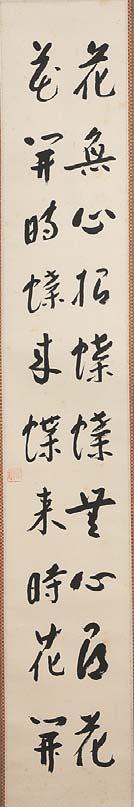 花無心招蝶蝶無心尋花
花開時蝶来蝶来時花開